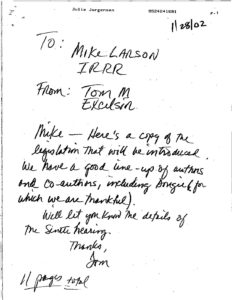 Julie Jorgensen 9524241681 P.1
1/28/02
TO: MIKE LARSON
IRRR
From: Tom M
Excelsior
Mike — Here's a copy of the
legislation that will be introduced.
We have a good line-up of authors
and co-authors, including (for
which we are thankful).
Will let you know the details of
the Senate hearing.
Thanks,
Tom
11 pages total